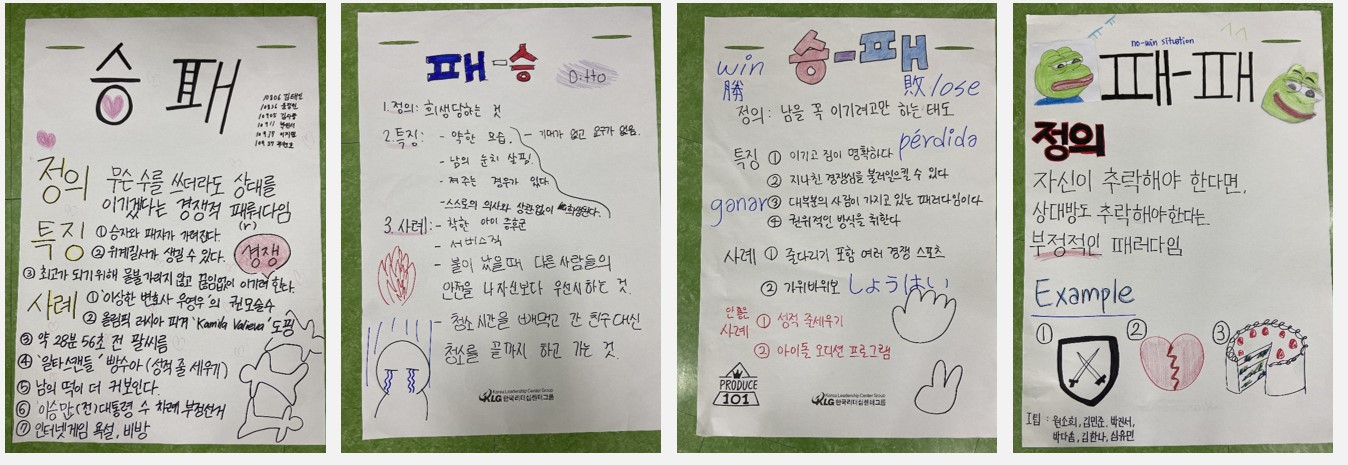 승 패
정의 무슨 수를 쓰더라도 상대를
이기겠다는 경쟁적 패뤄다임
(러)
특징 ① 승자와 패자가 가려진다.
② 위계질서가 생길 수 있다.
경쟁
③ 최고가 되기 위해 물불 가리지 않고 끊임없이 이기려 한다.
사례 ① '이상한 변호사 우영우'의 권모술수
② 올림픽 러시아 피겨 'Kamila Valieva' 도핑
③ 약 28분 56초 전 팔씨름
④ '일타스캔들' 빵수아 (성적 줄 세우기)
⑤ 남의 떡이 더 커보인다.
⑥ 이승만 (전)대통령 수 차례 부정선거
⑦ 인터넷게임 욕설, 비방
패-승
Ditto
1. 정의: 희생당하는 것
2. 특징: - 약한 모습.
- 기대가 없고 요구가 없음.
- 남의 눈치 살핌.
- 져 주는 경우가 있다
- 스스로의 의사와 상관없이 희생한다.
3. 사례: - 착한 아이 증후군
- 서비스직
- 불이 났을때 다른 사람들의
안전을 나 자신보다 우선시하는 것.
- 청소시간을 빼먹고 간 친구 대신
청소를 끝까지 하고 가는 것.
Korea Leadership Center Group
KLG 한국리더십센터그룹
승-패
win
勝
敗/lose
정의: 남을 꼭 이기려고만 하는 태도
pérdida
특징 ① 이기고 짐이 명확하다
② 지나친 경쟁심을 불러일으킬 수 있다
ganar
③ 대부분의 사람이 가지고 있는 패러다임이다
④ 권위적인 방식을 취한다
사례 ① 줄다리기 포함 여러 경쟁 스포츠
② 가위바위보
しょうはい
안 좋은
사례 ① 성적 줄세우기
② 아이돌 오디션 프로그램
PRODUCE
101
Korea Leadership Center Group
KLG 한국리더십센터그룹
no-win situation
패-패
정의
자신이 추락해야 한다면,
상대방도 추락해야한다는
부정적인 패러다임
Example
① ② ③
I팀 : 원소희, 김민준, 박진서,
박다솜, 김한나, 심유민